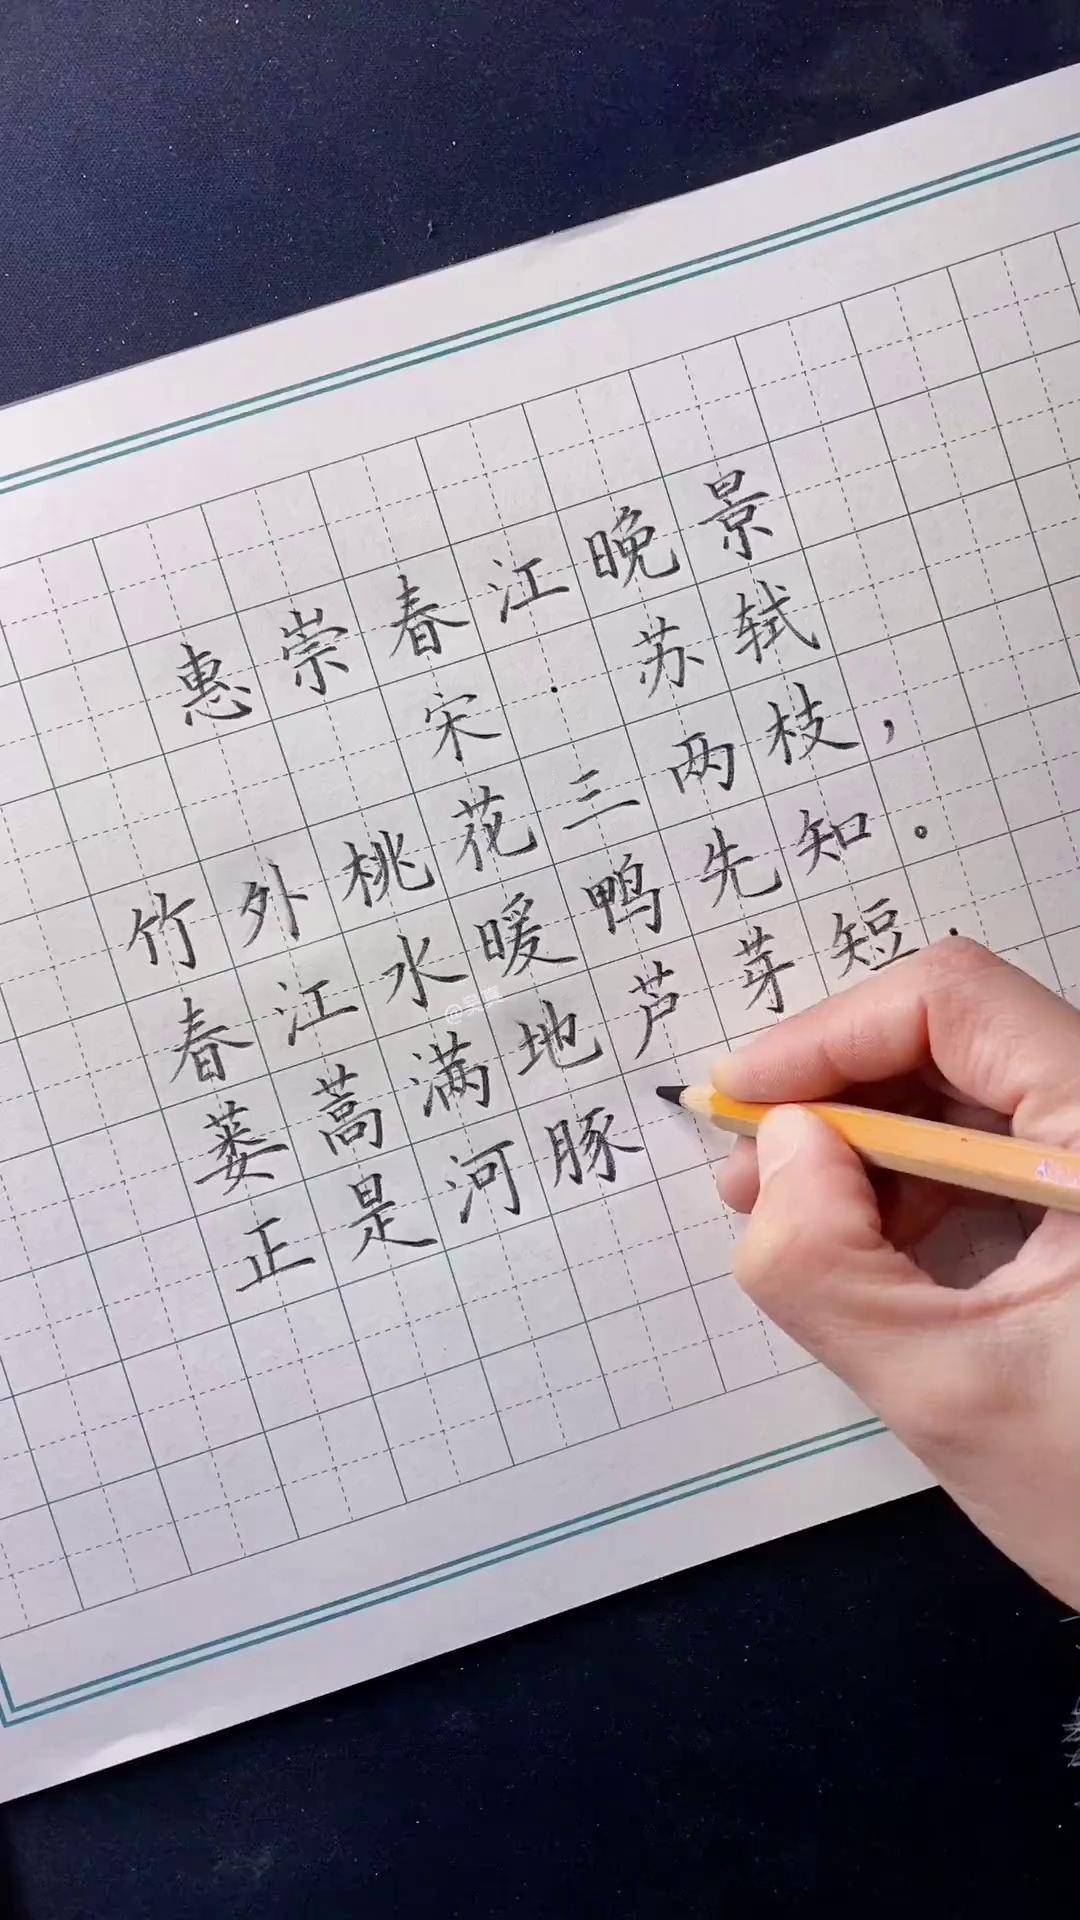 惠崇春江晚景
宋·苏轼
竹外桃花三两枝，
春江水暖鸭先知。
蒌蒿满地芦芽短，
正是河豚
@吴真